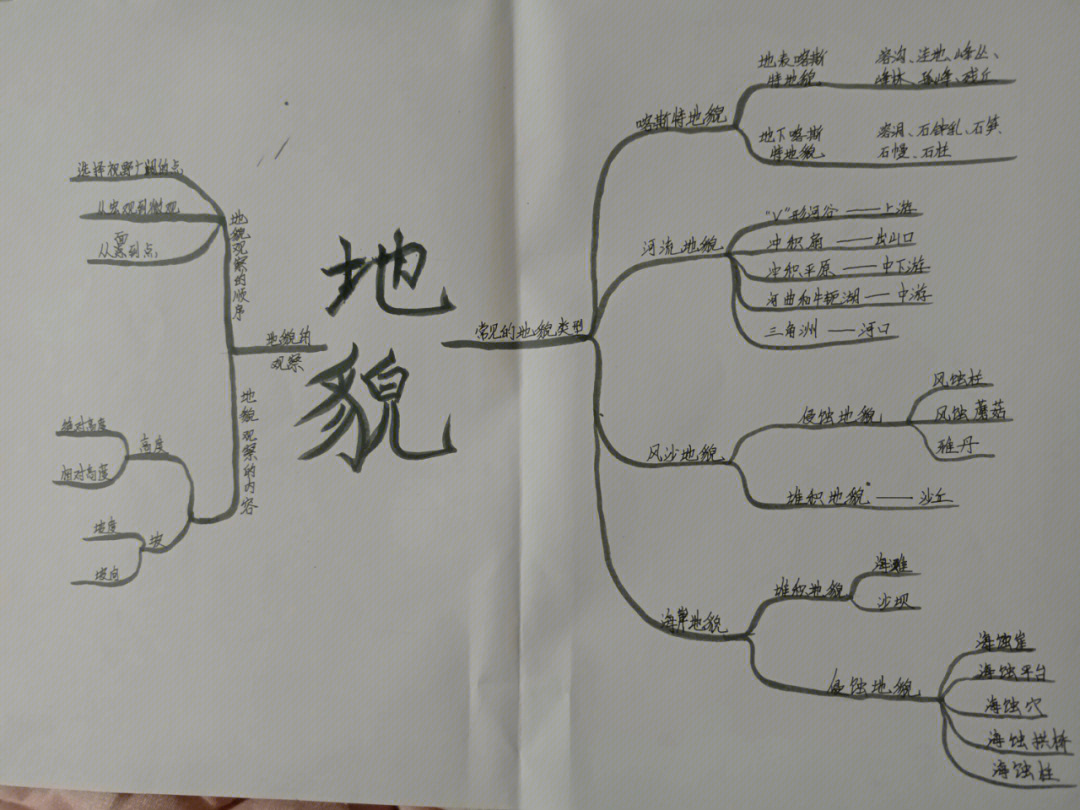 地貌
地貌的
观察
地貌观察的顺序
选择视野广阔的点
从宏观到微观
从面到点
地貌观察的内容
高度
绝对高度
相对高度
坡
坡度
坡向
常见的地貌类型
喀斯特地貌
地表喀斯
特地貌
溶沟、洼地、峰丛、
峰林、孤峰、残丘
地下喀斯
特地貌
溶洞、石钟乳、石笋、
石幔、石柱
河流地貌
“V”形河谷——上游
冲积扇——出山口
冲积平原——中下游
河曲和牛轭湖——中游
三角洲——河口
风沙地貌
侵蚀地貌
风蚀柱
风蚀蘑菇
雅丹
堆积地貌——沙丘
海岸地貌
堆积地貌
海滩
沙坝
侵蚀地貌
海蚀崖
海蚀平台
海蚀穴
海蚀拱桥
海蚀柱